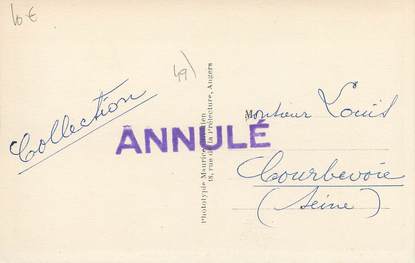 10 €
49)
Collection
ANNULÉ
Phototypie Maurice
18, rue de la Préfecture, Angers
Monsieur Louis
Courbevoie
(Seine)